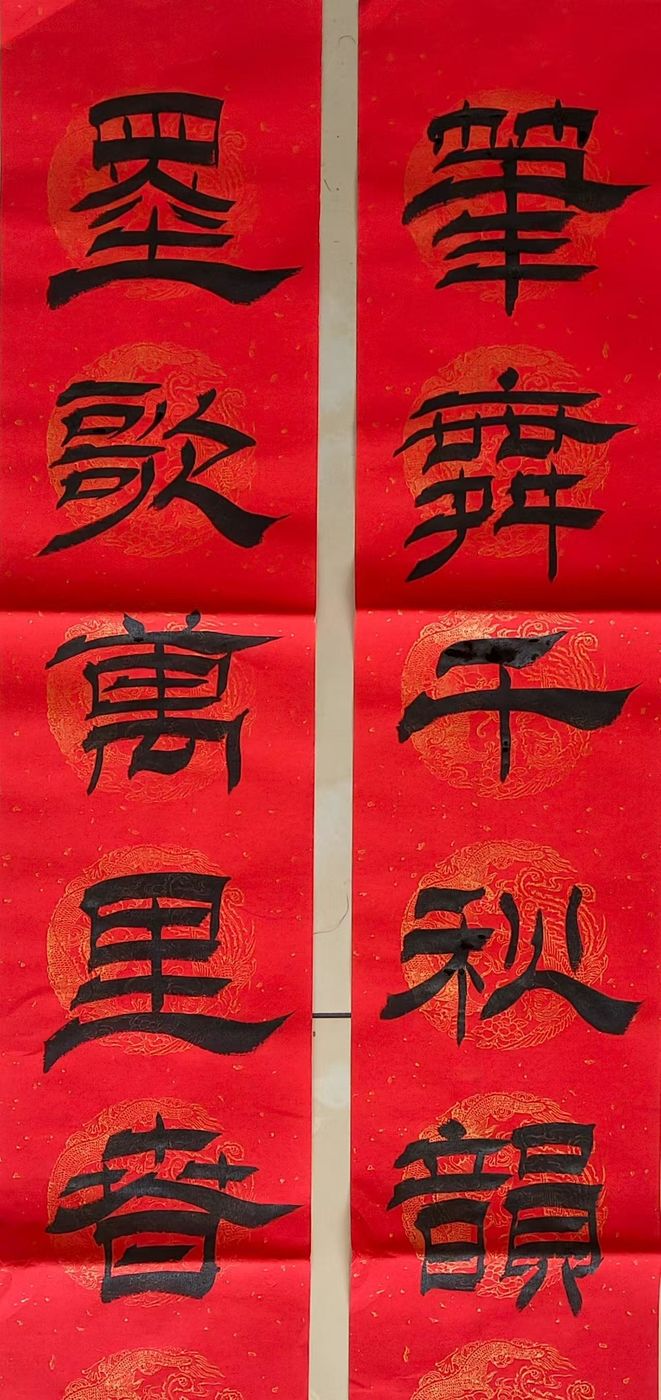 筆舞千秋韻
墨歌萬里春